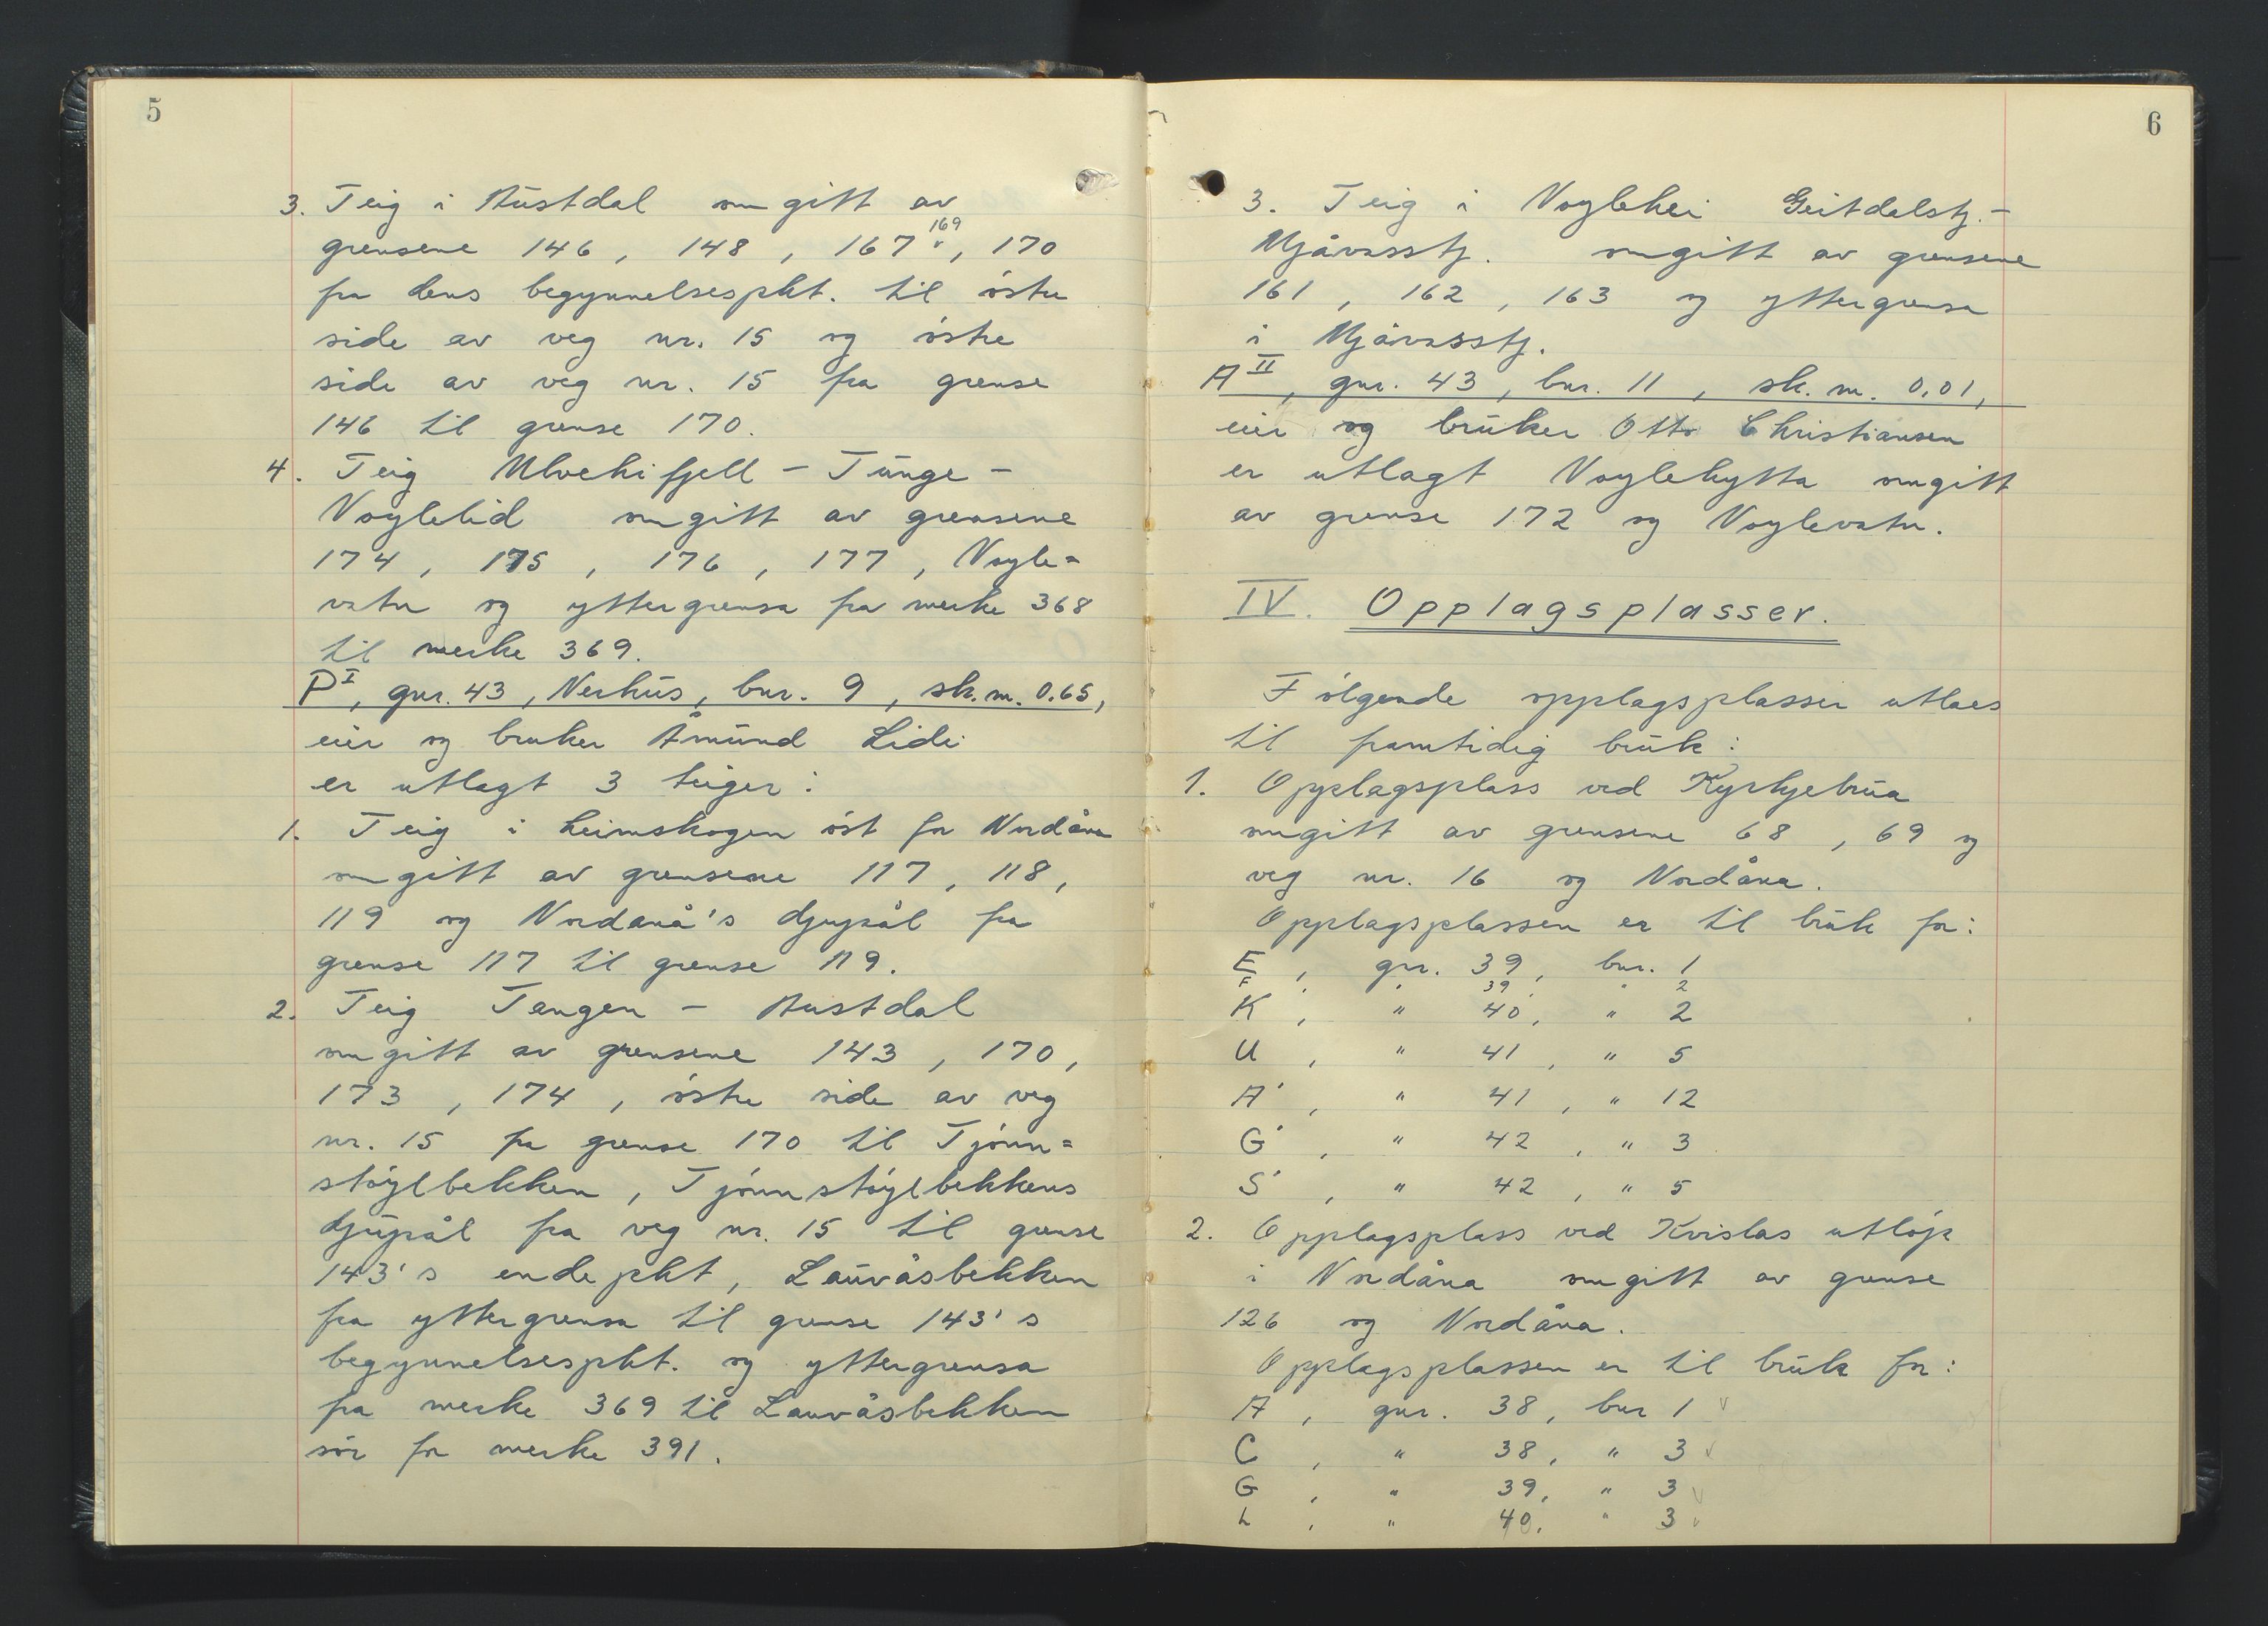 5
3. Teig i Austdal omgitt av
grensene 146, 148, 167, 169, 170
fra dens begynnelsespkt. til östre
side av veg nr. 15 og östre
side av veg nr. 15 fra grense
146 til grense 170.
4. Teig Ulveheifjell - Tunge -
Voylelid omgitt av grensene
174, 175, 176, 177, Voyle=
vatn og yttergrensa fra merke 368
til merke 369.
P I, gnr. 43, Nerhus, bnr. 9, sk.m. 0.65,
eier og bruker Åmund Lidi
er utlagt 3 teiger:
1. Teig i heimskogen öst for Nordåna
omgitt av grensene 117, 118,
119 og Nordanå's djupål fra
grense 117 til grense 119.
2. Teig Tangen - Austdal
omgitt av grensene 143, 170,
173, 174, östre side av veg
nr. 15 fra grense 170 til Tjönn=
stöylbekken, Tjönnstöylbekkens
djupål fra veg nr. 15 til grense
143's endepkt, Lauvåsbekken
fra yttergrensa til grense 143's
begynnelsespkt. og yttergrensa
fra merke 369 til Lauvåsbekken
sör for merke 391.
6
3. Teig i Voylehei Geitdalstj.-
Mjåvasstj. omgitt av grensene
161, 162, 163 og yttergrensa
i Mjåvasstj.
A II, gnr. 43, bnr. 11, sk.m. 0,01,
eier og bruker Otto Christiansen
er utlagt Voylehytta omgitt
av grense 172 og Voylevatn.
IV. Opplagsplasser.
Fölgende opplagsplasser utlaes
til framtidig bruk:
1. Opplagsplass ved Kyrkjebrua
omgitt av grensene 68, 69 og
veg nr. 16 og Nordåna.
Opplagsplassen er til bruk for:
E, gnr. 39, bnr. 1
F, " 39, " 2
K, " 40, " 2
U, " 41, " 5
A', " 41, " 12
G', " 42, " 3
S', " 42, " 5
2. Opplagsplass ved Kvislas utlöp
i Nordåna omgitt av grense
126 og Nordåna.
Opplagsplassen er til bruk for:
A, gnr. 38, bnr 1 v
C, " 38, " 3 v
G, " 39, " 3 v
L, " 40, " 3 v